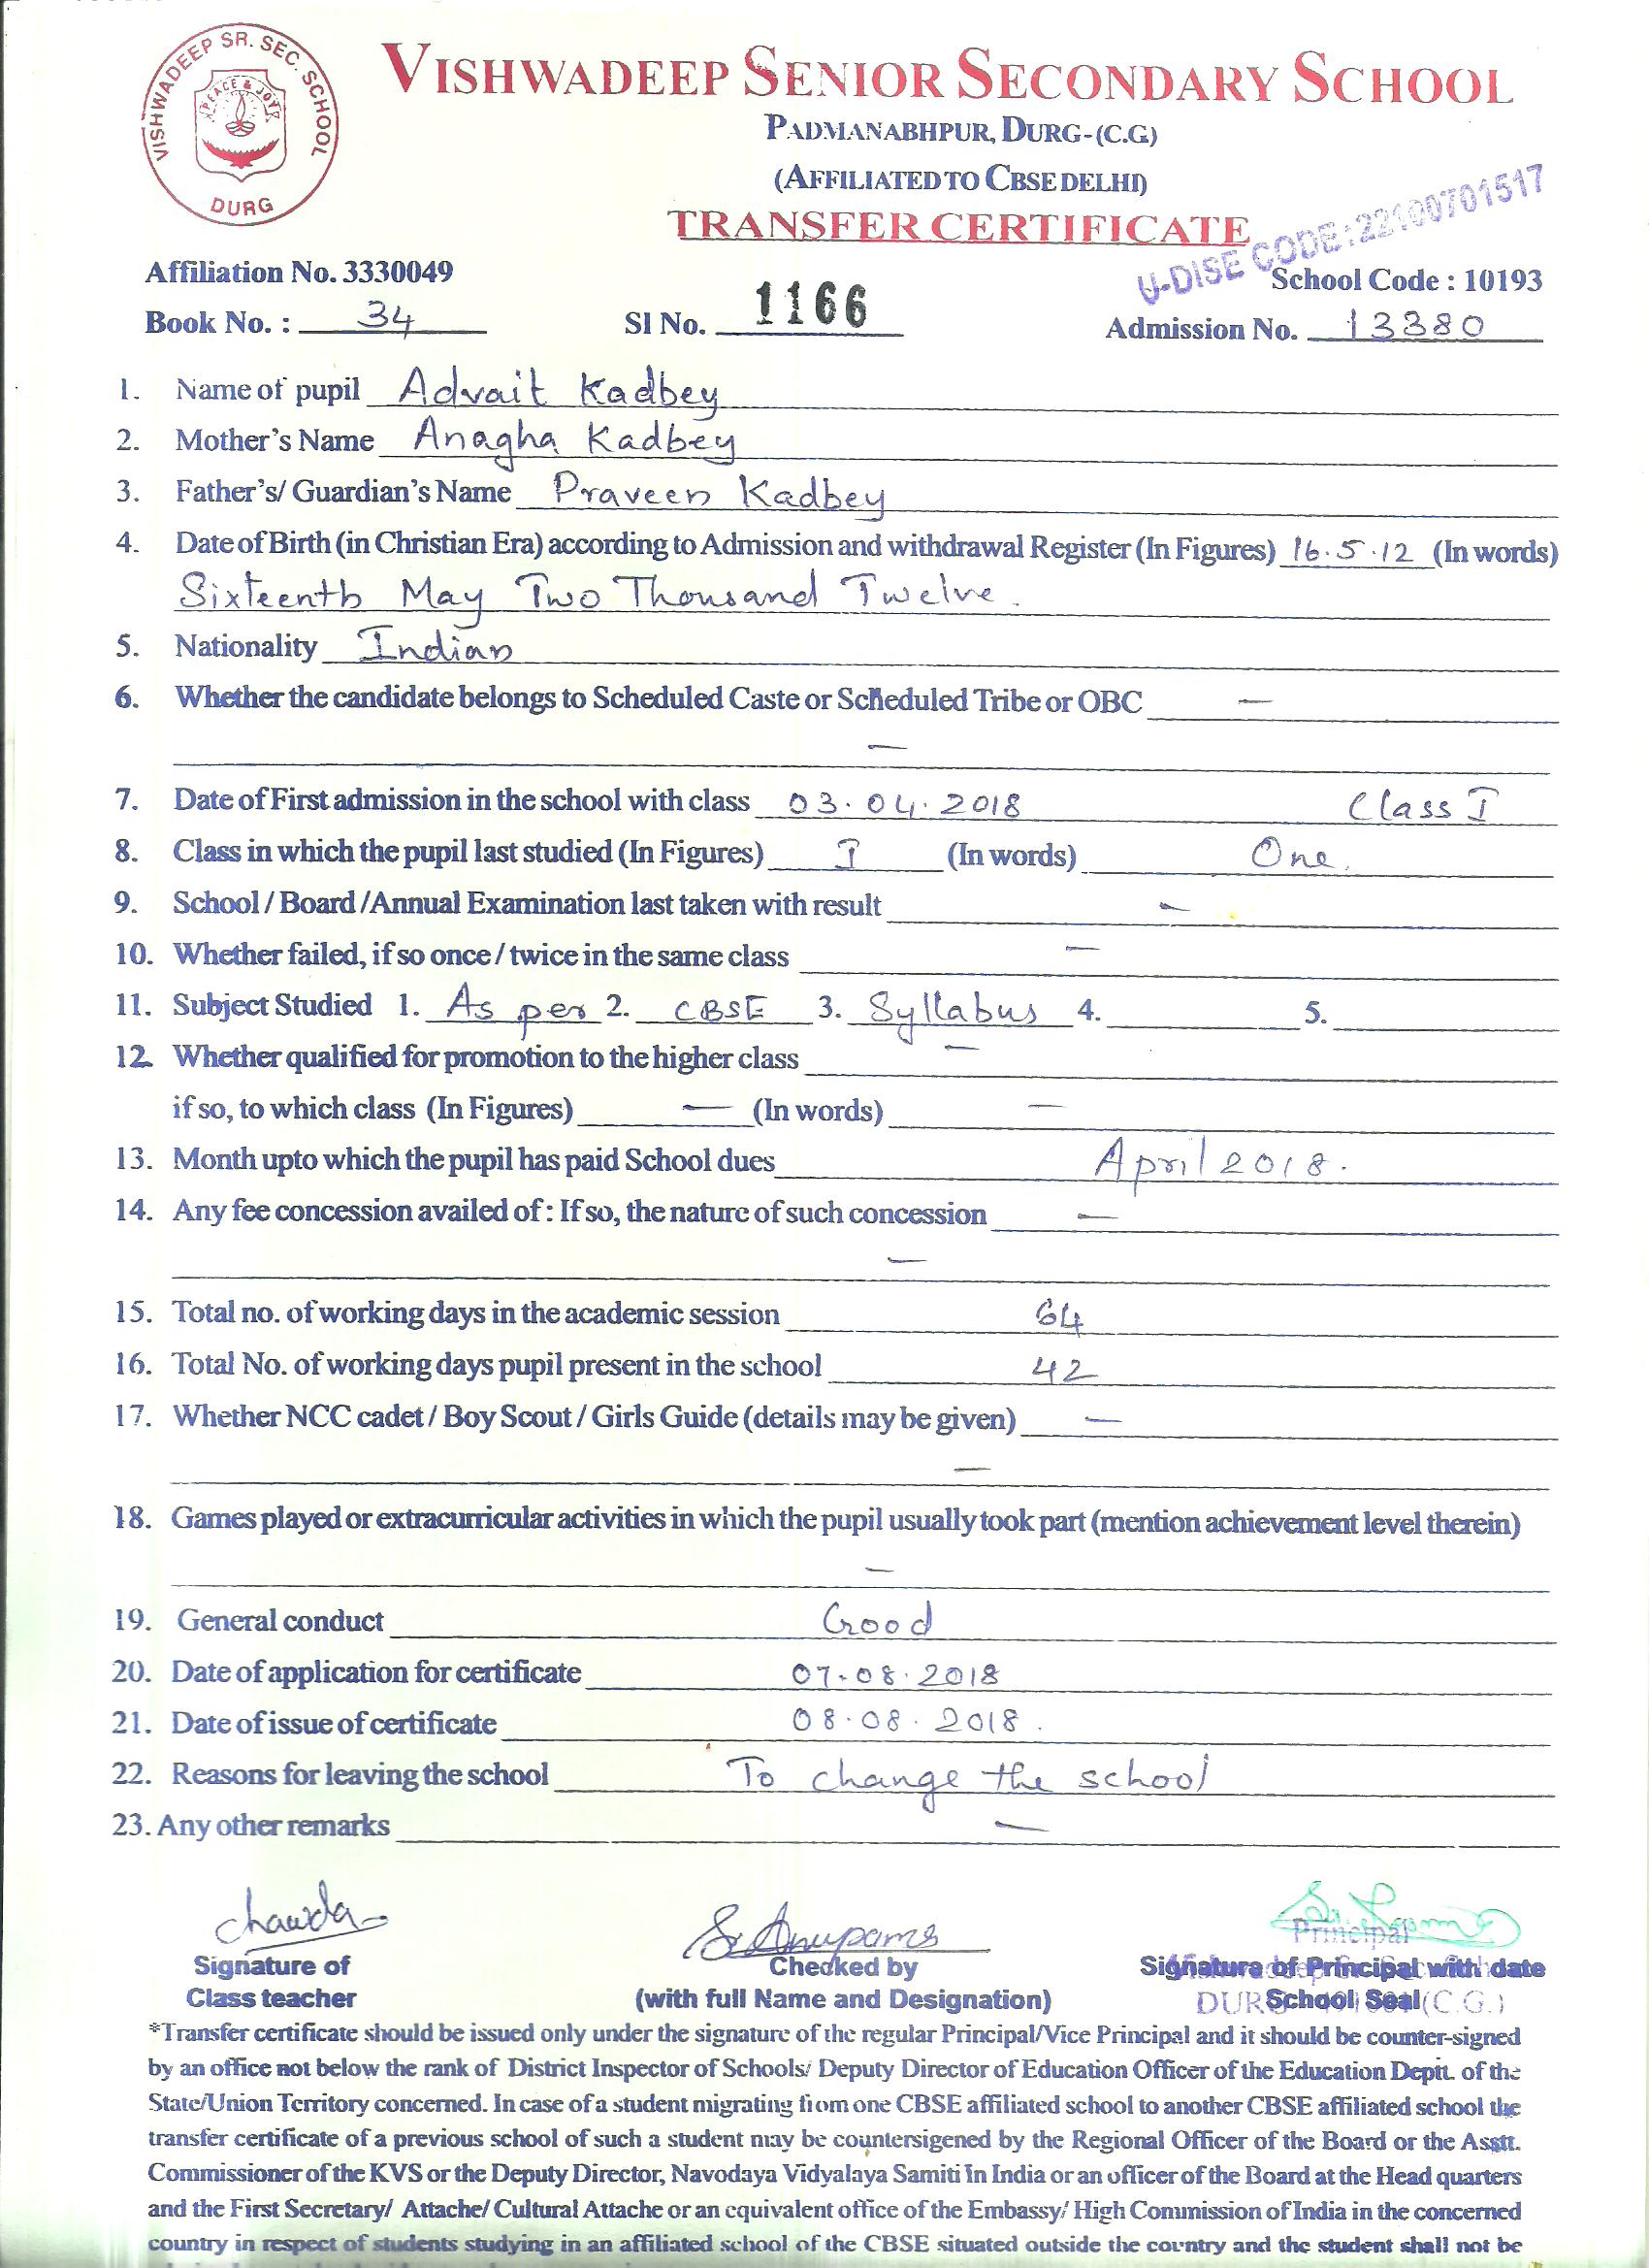 VISHWADEEP SR. SEC. SCHOOL
PEACE & JOY
DURG
VISHWADEEP SENIOR SECONDARY SCHOOL
PADMANABHPUR, DURG-(C.G.)
(AFFILIATED TO CBSE DELHI)
TRANSFER CERTIFICATE
U-DISE CODE: 22100701517
Affiliation No. 3330049 School Code : 10193
Book No. : 34 Sl No. 1166 Admission No. 13380
1. Name of pupil Advait Kadbey
2. Mother's Name Anagha Kadbey
3. Father's/ Guardian's Name Praveen Kadbey
4. Date of Birth (in Christian Era) according to Admission and withdrawal Register (In Figures) 16.5.12 (In words)
Sixteenth May Two Thousand Twelve.
5. Nationality Indian
6. Whether the candidate belongs to Scheduled Caste or Scheduled Tribe or OBC —
—
7. Date of First admission in the school with class 03.04.2018 Class I
8. Class in which the pupil last studied (In Figures) I (In words) One.
9. School / Board /Annual Examination last taken with result —
10. Whether failed, if so once / twice in the same class —
11. Subject Studied 1. As per 2. CBSE 3. Syllabus 4. 5.
12. Whether qualified for promotion to the higher class —
if so, to which class (In Figures) — (In words) —
13. Month upto which the pupil has paid School dues April 2018.
14. Any fee concession availed of : If so, the nature of such concession —
—
15. Total no. of working days in the academic session 64
16. Total No. of working days pupil present in the school 42
17. Whether NCC cadet / Boy Scout / Girls Guide (details may be given) —
—
18. Games played or extracurricular activities in which the pupil usually took part (mention achievement level therein)
—
19. General conduct Good
20. Date of application for certificate 07.08.2018
21. Date of issue of certificate 08.08.2018.
22. Reasons for leaving the school To change the school
23. Any other remarks —
Chawda Sr. Anupama
Principal
Signature of Checked by Signature of Principal with date
Class teacher (with full Name and Designation) School Seal
DURG (C.G.)
*Transfer certificate should be issued only under the signature of the regular Principal/Vice Principal and it should be counter-signed
by an office not below the rank of District Inspector of Schools/ Deputy Director of Education Officer of the Education Deptt. of the
State/Union Territory concerned. In case of a student migrating from one CBSE affiliated school to another CBSE affiliated school the
transfer certificate of a previous school of such a student may be countersigened by the Regional Officer of the Board or the Asstt.
Commissioner of the KVS or the Deputy Director, Navodaya Vidyalaya Samiti in India or an officer of the Board at the Head quarters
and the First Secretary/ Attache/ Cultural Attache or an equivalent office of the Embassy/ High Commission of India in the concerned
country in respect of students studying in an affiliated school of the CBSE situated outside the country and the student shall not be